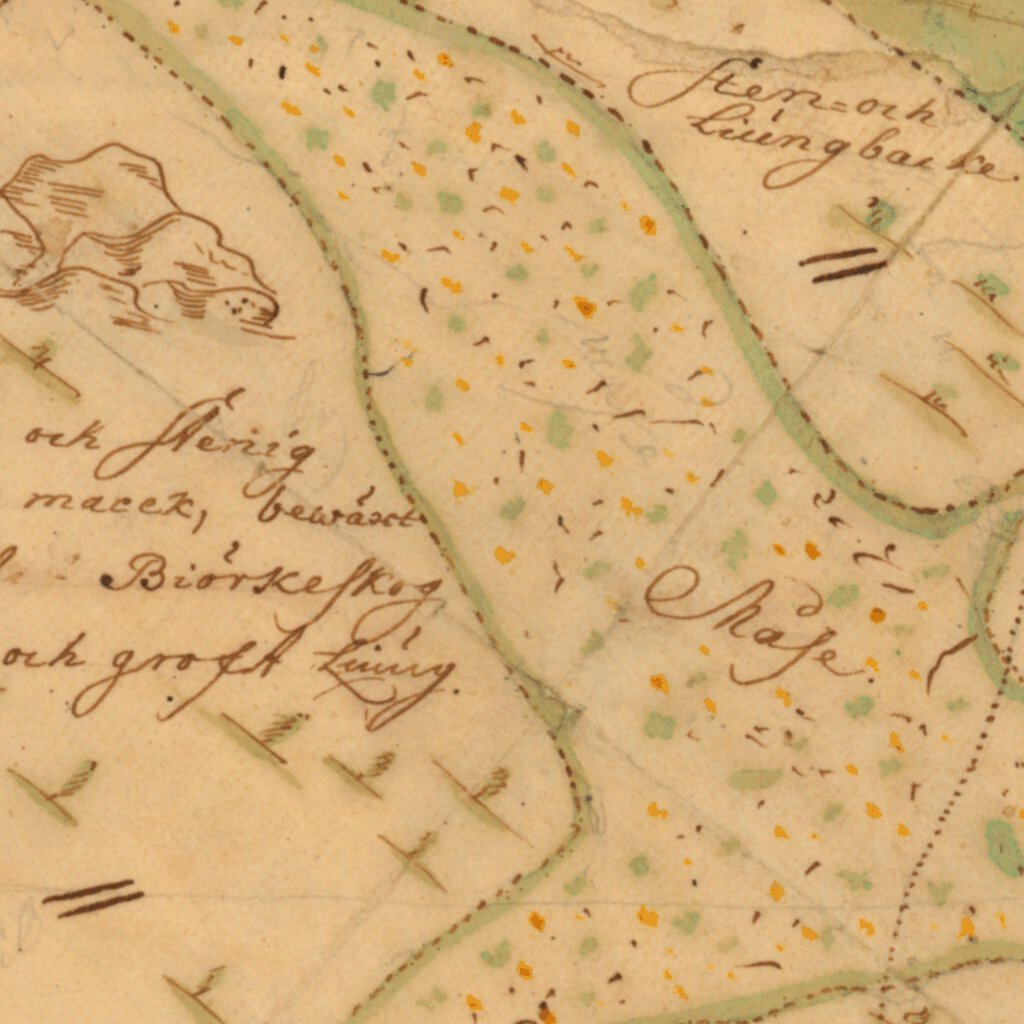 Sten=och
Liüngbacke.
och stenig
macek, bewäxt
Biörkeskog
och groft Liüng.
Måse